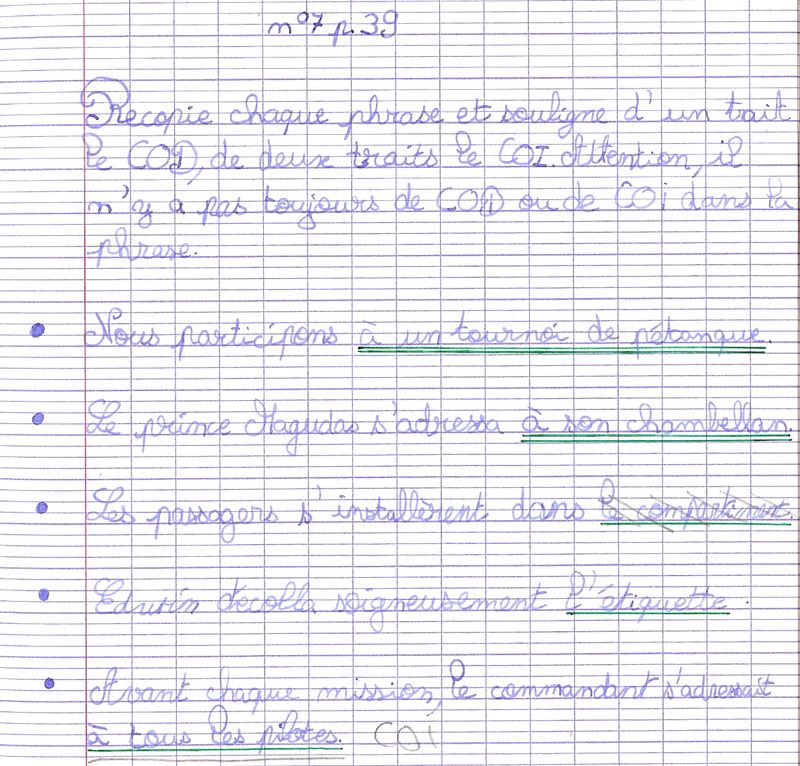 n°7 p.39
Recopie chaque phrase et souligne d'un trait
le COD, de deux traits le COI. Attention, il
n'y a pas toujours de COD ou de COi dans la
phrase.
Nous participons à un tournoi de pétanque.
Le prince Magudas s'adressa à son chambellan.
Les passagers s'installèrent dans le compartiment.
Edwin décolla soigneusement l'étiquette.
Avant chaque mission, le commandant s'adressait
à tous les pilotes. COi